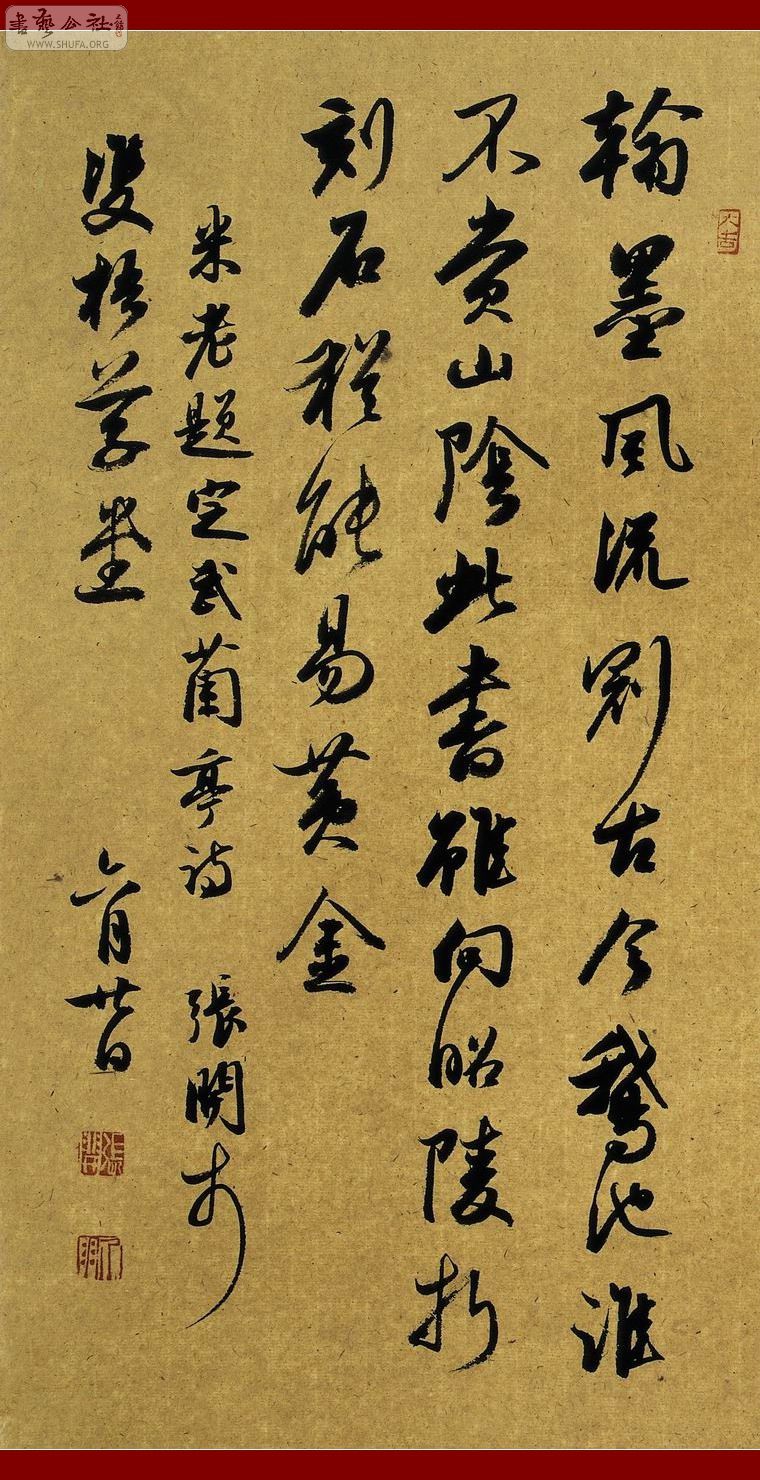 書藝公社
WWW.SHUFA.ORG
翰墨風流冠古今鵝池誰
不賞山陰此書雖向昭陵朽
刻石猶能易黃金
米老題定武蘭亭詩 張
雙梧草堂 六月廿日
大吉